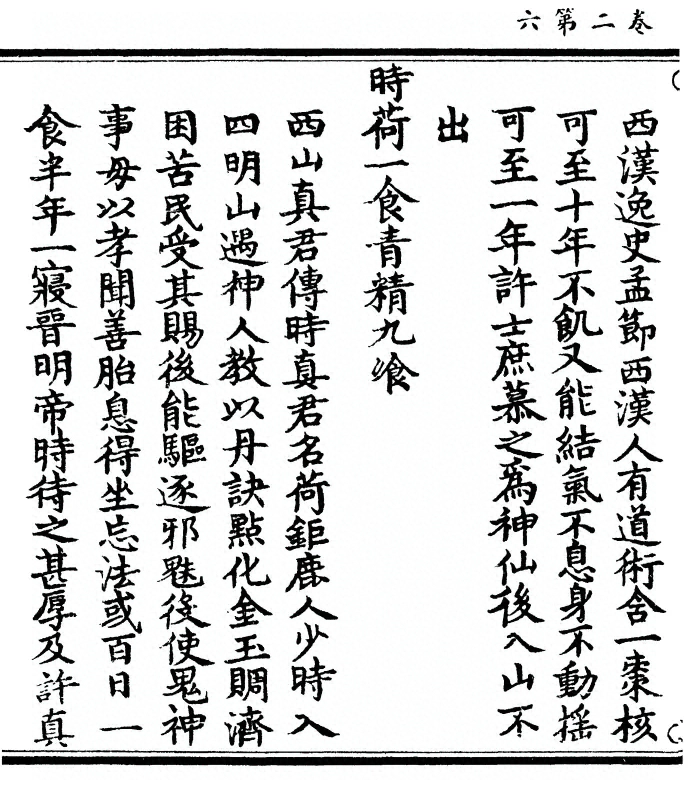 卷二第六
西漢逸史孟節西漢人有道術含一棗核
可至十年不飢又能結氣不息身不動揺
可至一年許士庶慕之爲神仙後入山不
出
時荷一食青精九飱
西山真君傳時真君名荷鉅鹿人少時入
四明山遇神人教以丹訣點化金玉賙濟
困苦民受其賜後能驅逐邪魅後使鬼神
事母以孝聞善胎息得坐忘法或百日一
食半年一寢晉明帝時待之甚厚及許真